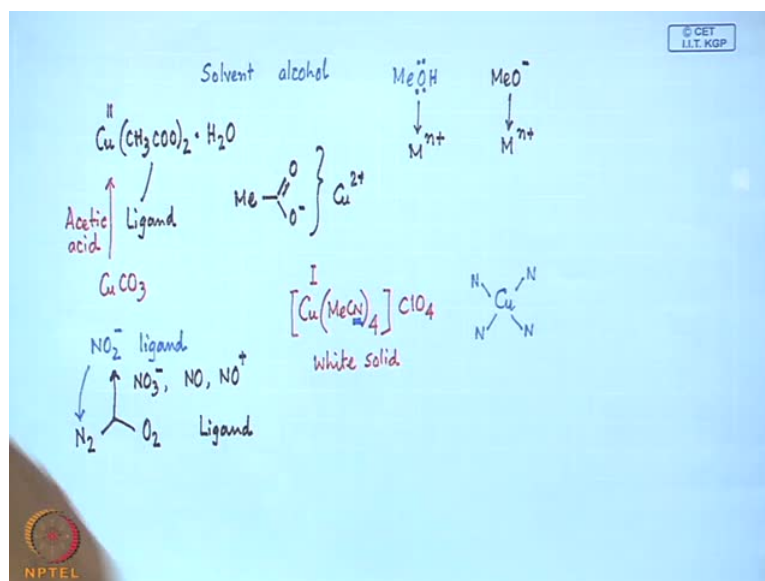 © CET
I.I.T. KGP
Solvent alcohol
MeÖH
MeO⁻
M^n+
M^n+
II
Cu(CH₃COO)₂ · H₂O
Acetic acid
Ligand
CuCO₃
Me
O
O⁻
Cu²⁺
I
[Cu(MeCN)₄]ClO₄
White solid
N
N
Cu
N
N
NO₂⁻ ligand
NO₃⁻, NO, NO⁺
N₂
O₂
Ligand
NPTEL